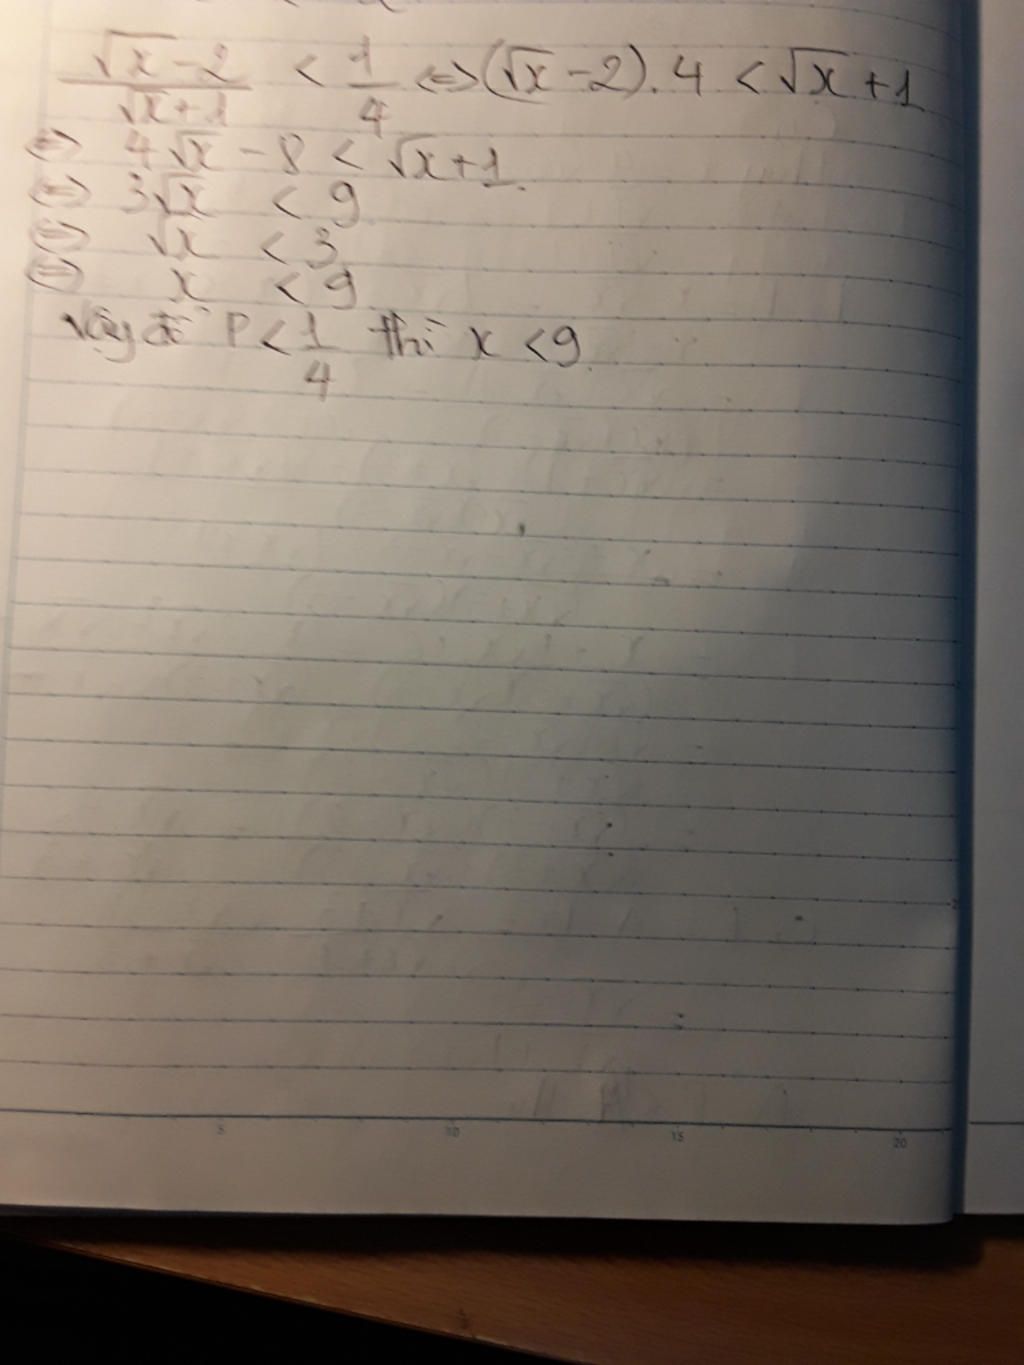 (√x-2)/(√x+1) < 1/4 <=> (√x-2).4 < √x+1
<=> 4√x-8 < √x+1.
<=> 3√x < 9
<=> √x < 3
<=> x < 9
Vậy để P < 1/4 thì x < 9.
5 10 15 20